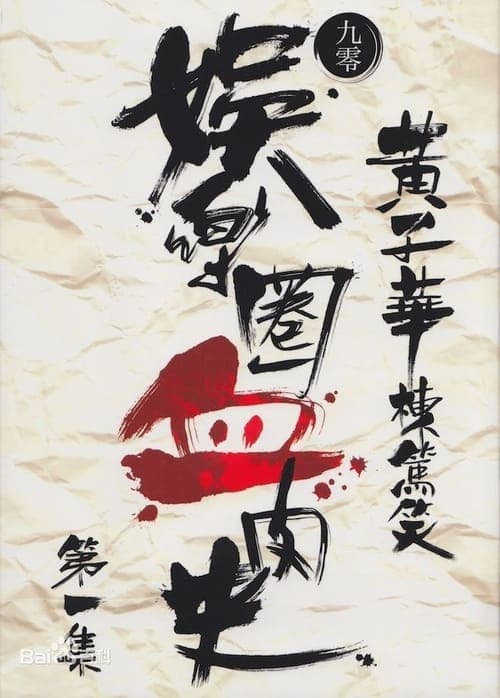 九零
黃子華
棟篤笑
娛樂圈血肉史
第一集
Bai百科